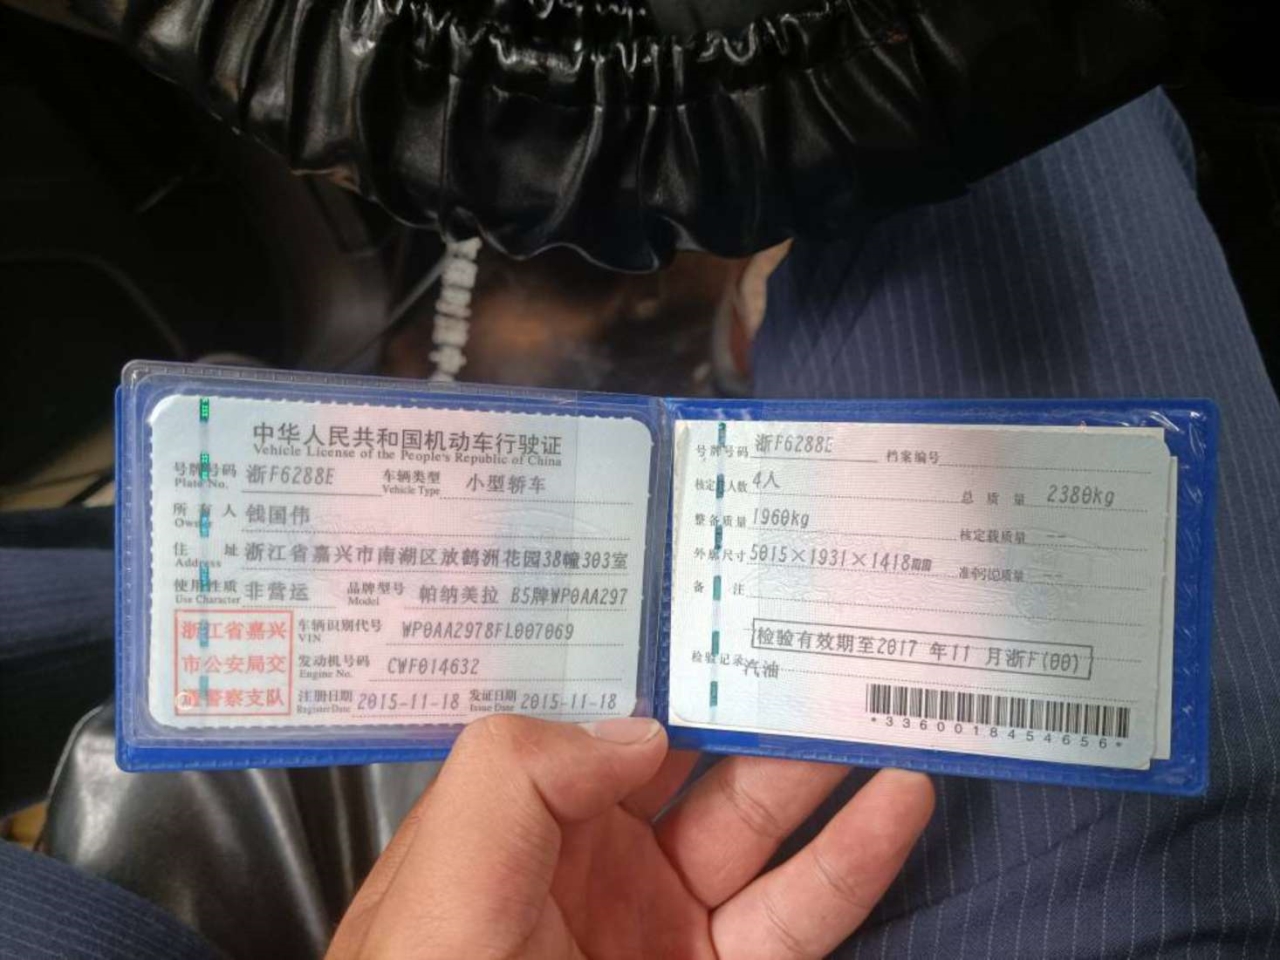 中华人民共和国机动车行驶证
Vehicle License of the People's Republic of China
号牌号码 浙F6288E 车辆类型 小型轿车
Plate No. Vehicle Type
所有人 钱国伟
Owner
住址 浙江省嘉兴市南湖区放鹤洲花园38幢303室
Address
使用性质 非营运 品牌型号 帕纳美拉 B5牌WP0AA297
Use Character Model
浙江省嘉兴
市公安局交
通警察支队
车辆识别代号 WP0AA2978FL007069
VIN
发动机号码 CWF014632
Engine No.
注册日期 2015-11-18 发证日期 2015-11-18
Register Date Issue Date
号牌号码 浙F6288E 档案编号
核定载人数 4人 总质量 2380kg
整备质量 1960kg 核定载质量 --
外廓尺寸 5015×1931×1418mm 准牵引总质量 --
备注
检验有效期至2017年11月浙F(00)
检验记录 汽油
*3360018454656*